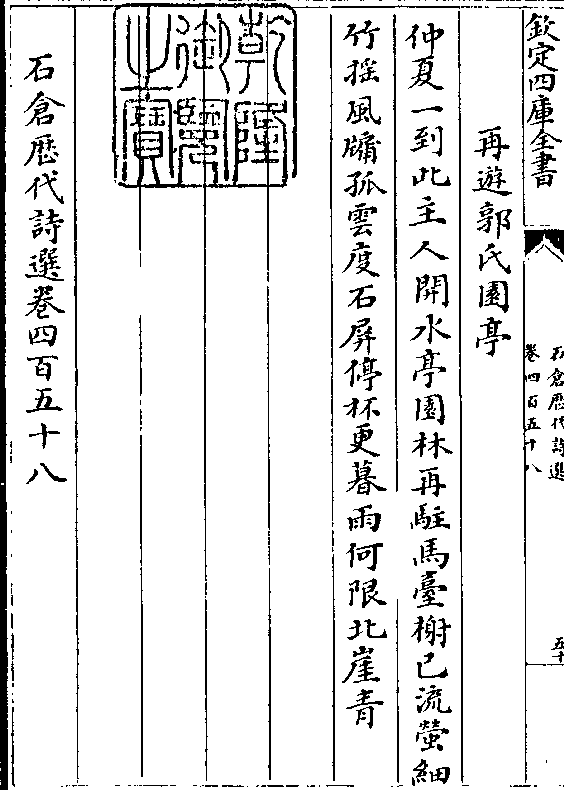 欽定四庫全書
石倉歷代詩選
卷四百五十八
五十
再遊郭氏園亭
仲夏一到此主人開水亭園林再駐馬臺榭已流螢細
竹揺風牖孤雲度石屏停杯更暮雨何限北崖青
乾隆
御覽
之寶
石倉歷代詩選卷四百五十八